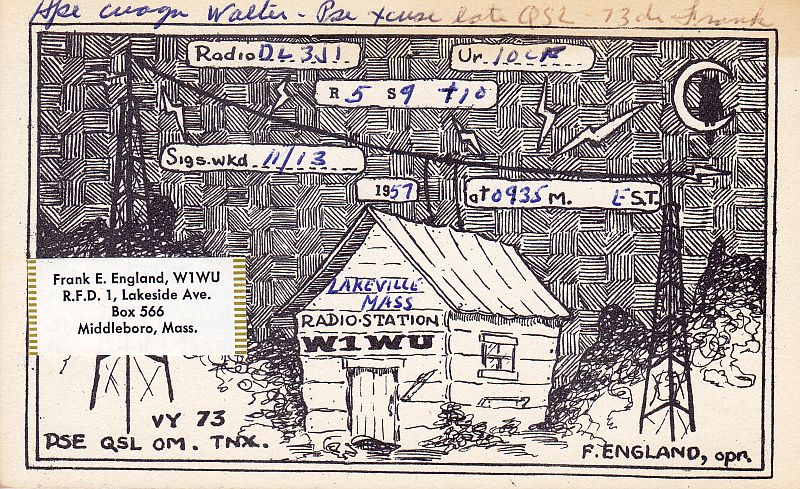 Hpe cuagn Walter - Pse xcuse late QSL - 73 de Frank
Radio DL3JI
Ur 10CW
R 5 S 9 +10
Sigs.wkd. 11/13
1957
at 0935 M. EST.
Frank E. England, W1WU
R.F.D. 1, Lakeside Ave.
Box 566
Middleboro, Mass.
LAKEVILLE
MASS
RADIO·STATION
W1WU
VY 73
PSE QSL OM. TNX.
F. ENGLAND, opr.